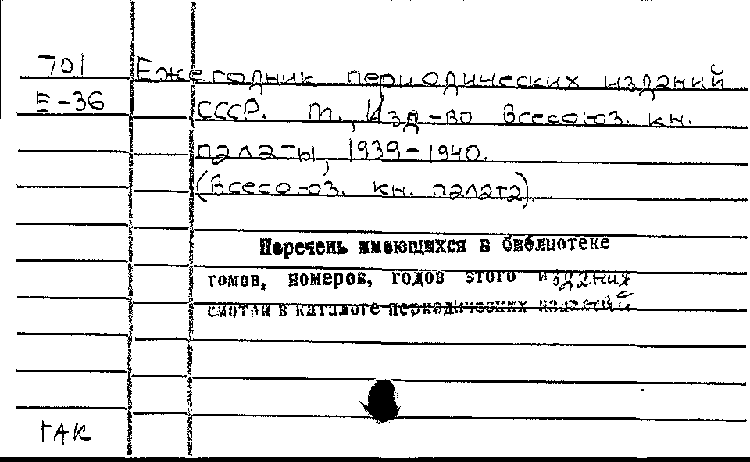 701
Е-36
Ежегодник периодических изданий
СССР. М., Изд-во Всесоюз. кн.
палаты, 1939-1940.
(Всесоюз. кн. палата).
Перечень имеющихся в библиотеке
томов, номеров, годов этого издания
смотри в каталоге периодических изданий
ГАК